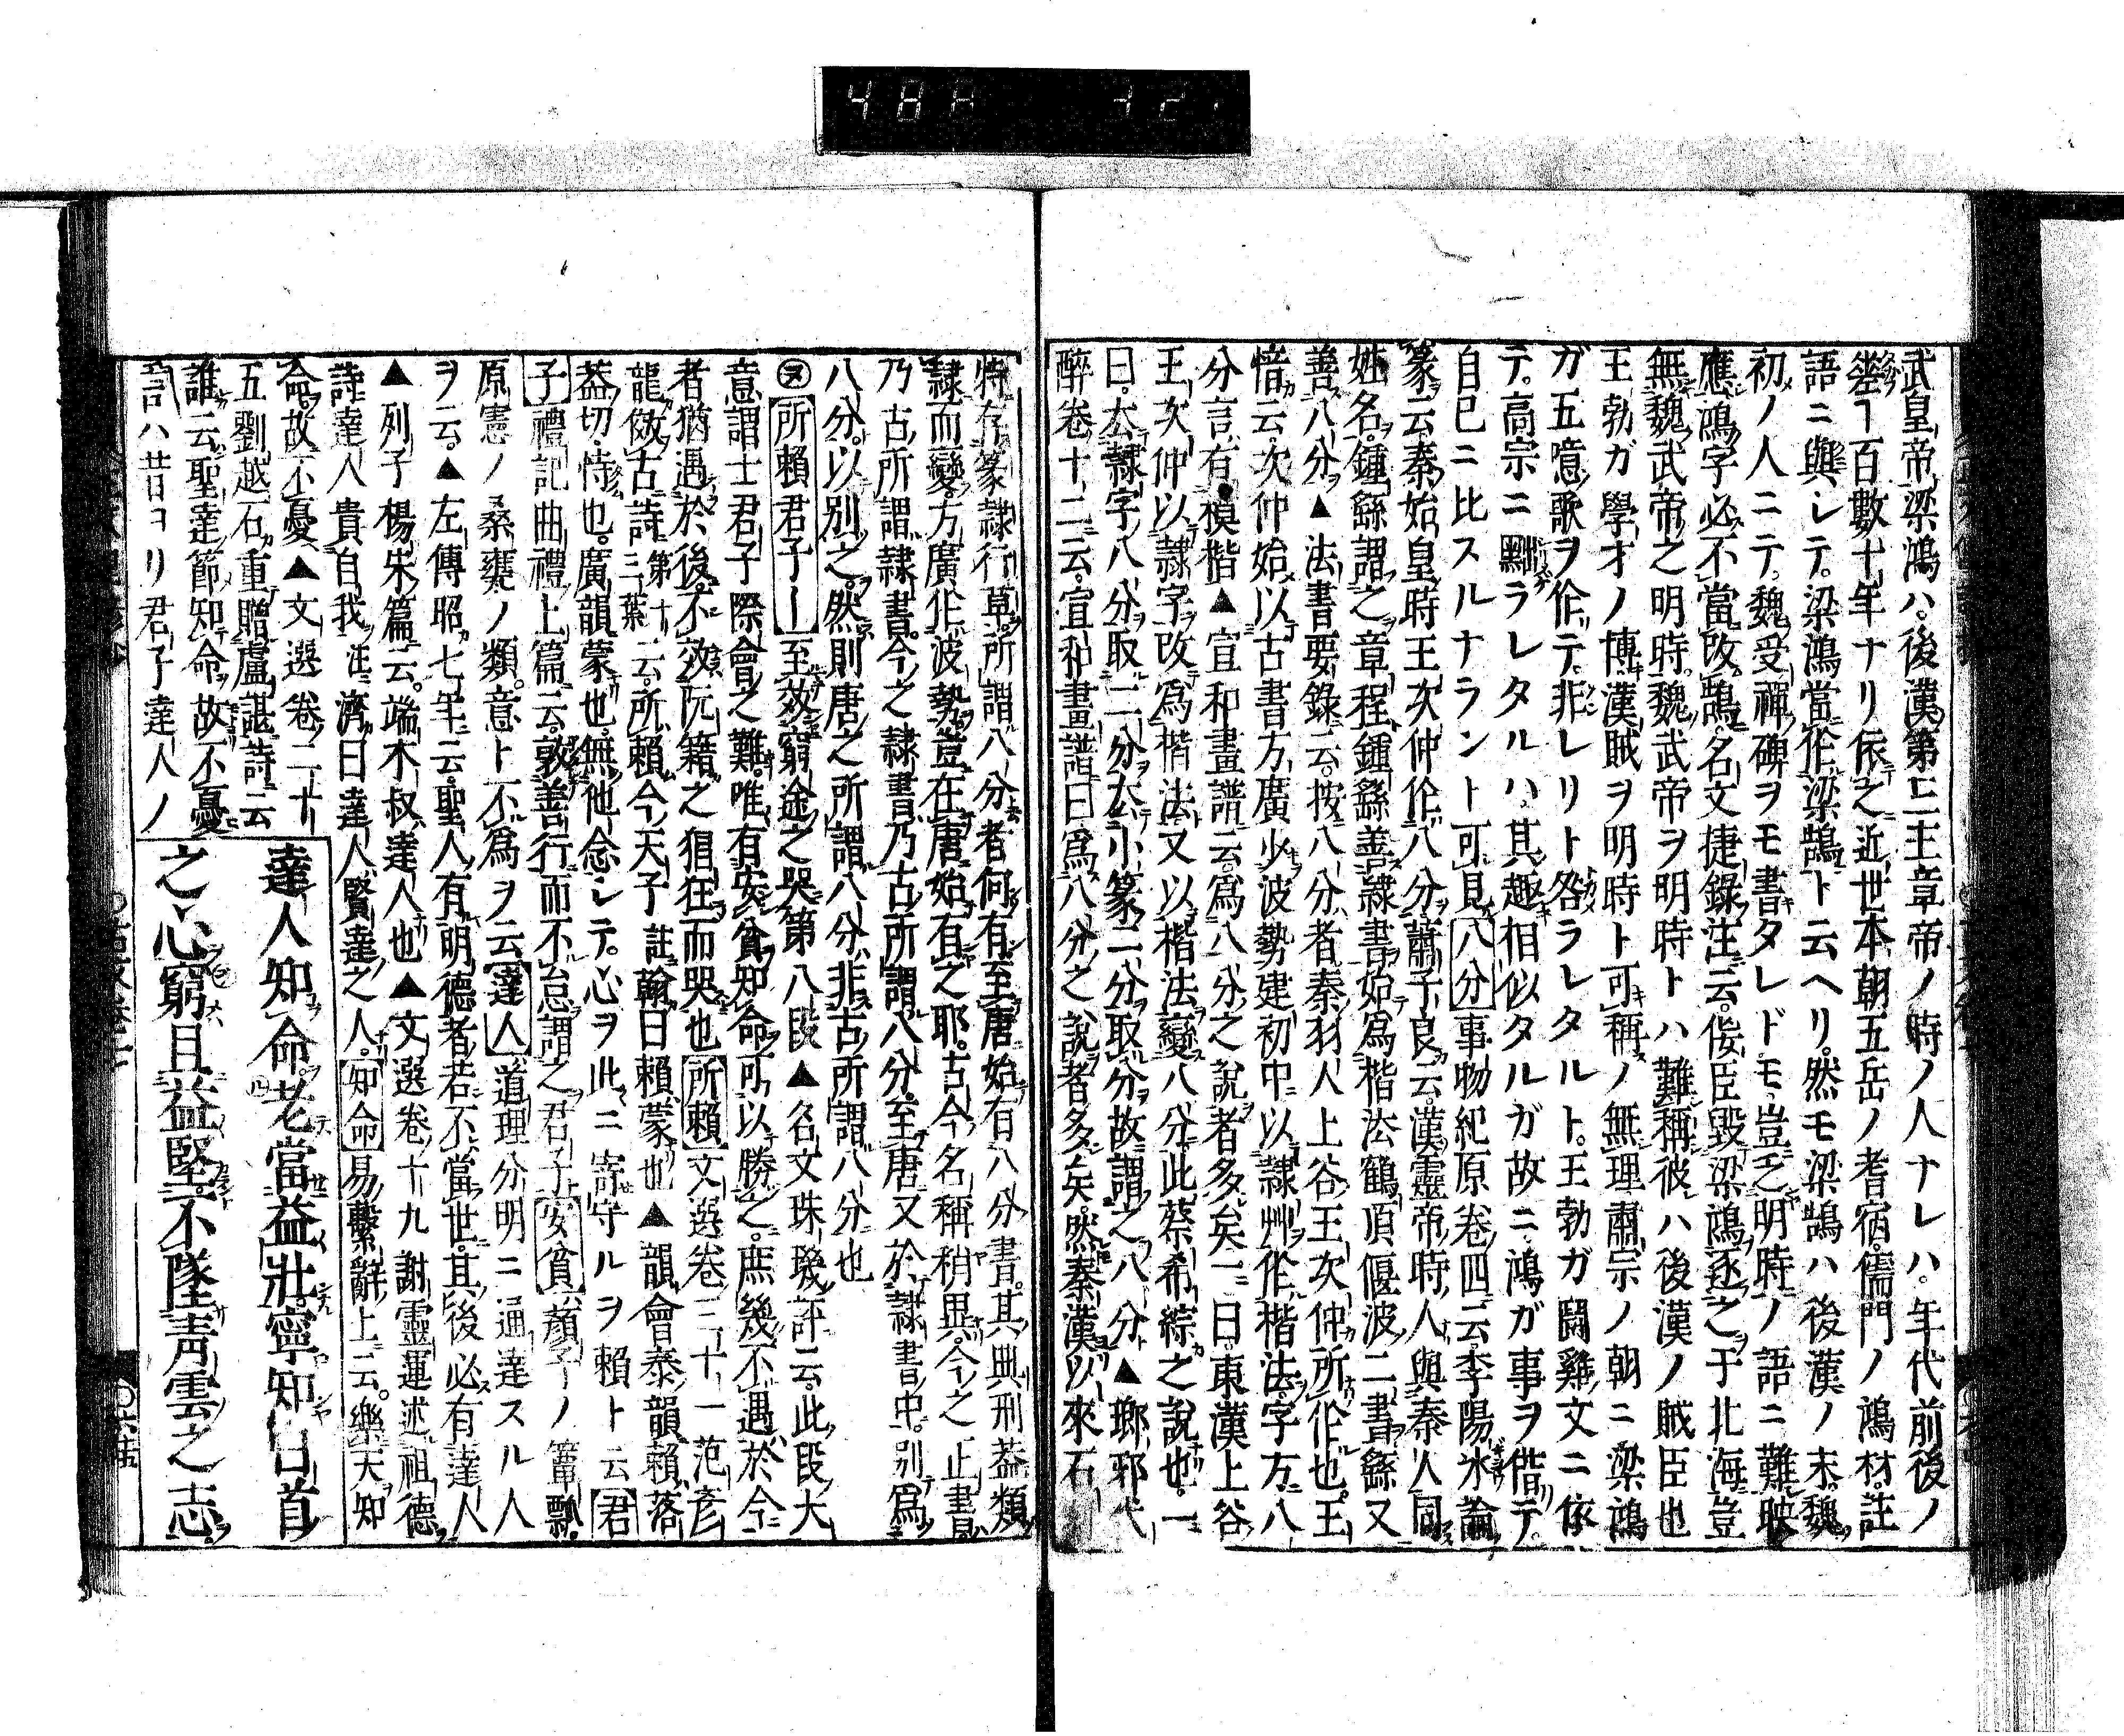 武皇帝梁鴻ハ後漢第三主章帝ノ時ノ人ナレハ年代前後ノ
ヿ百數十年ナリ依之近世本朝五岳ノ耆宿儒門ノ鴻材註
語ニ與シテ梁鴻當作梁鵠ト云ヘリ然モ梁鵠ハ後漢ノ末魏
初ノ人ニテ魏受禪碑ヲモ書タレドモ豈乏明時ノ語ニ難映
應鴻字必不當改鵠名文捷錄注云佞臣毀梁鴻逐之于北海豈
無魏武帝之明時魏武帝ヲ明時トハ難稱彼ハ後漢ノ賊臣也
王勃ガ學才ノ博漢賊ヲ明時ト可稱ノ無理肅宗ノ朝ニ梁鴻
ガ五噫歌ヲ作テ非レリト咎ラレタルト王勃ガ鬪雞文ニ依
テ高宗ニ黜ラレタルハ其趣相似タルガ故ニ鴻ガ事ヲ借テ
自已ニ比スルナラント可見八分事物紀原卷四云李陽冰論
篆云秦始皇時王次仲作八分蕭子良云漢靈帝時人與秦人同
姓名鍾繇謂之章程鍾繇善隷書始爲楷法鶴頂偃波二書繇又
善八分▲法書要錄云按八分者秦羽人上谷王次仲所作也王
愔云次仲始以古書方廣少波勢建初中以隷艸作楷法字方八
分言有模楷▲宣和畫譜云爲八分之說者多矣一曰東漢上谷
王次仲以隷字改爲楷法又以楷法變八分此蔡希綜之說也一
曰去隷字八分取二分去小篆二分取分故謂之八分▲瑯邪代
醉卷十二云宣和畫譜曰爲八分之說者多矣然秦漢以來石
特存篆隷行草所謂八分者何有至唐始有八分書其典刑葢類
隷而變方廣作波勢豈在唐始有之耶古今名稱稍異今之正書
乃古所謂隷書今之隷書乃古所謂八分至唐又於隷書中別爲
八分以別之然則唐之所謂八分非古所謂八分也
ヲ所賴君子ー至效窮途之哭第八段▲名文珠璣評云此段大
意謂士君子際會之難唯有安貧知命可以勝之庶幾不遇於今
者猶遇於後不效阮籍之猖狂而哭也所賴文選卷三十一范彥
龍傚古詩第十三葉云所賴今天子註翰曰賴蒙也▲韻會泰韻賴落
葢切恃也廣韻蒙也無他念シテ心ヲ此ニ寄守ルヲ賴ト云君
子禮記曲禮上篇云敦善行而不怠謂之君子安貧顏子ノ簞瓢
原憲ノ桑甕ノ類意ト不爲ヲ云達人道理分明ニ通達スル人
ヲ云▲左傳昭七年云聖人有明德者若不當世其後必有達人
▲列子楊朱篇云端木叔達人也▲文選卷十九謝靈運述祖德
詩達人貴自我注濟曰達人賢達之人知命易繫辭上云樂天知
命故不憂▲文選卷二十
五劉越石重贈盧諶詩云
誰云聖達節知命故不憂
言ハ昔ヨリ君子達人ノ
達人知命老當益壯寧知白首
之心窮且益堅不墜靑雲之志